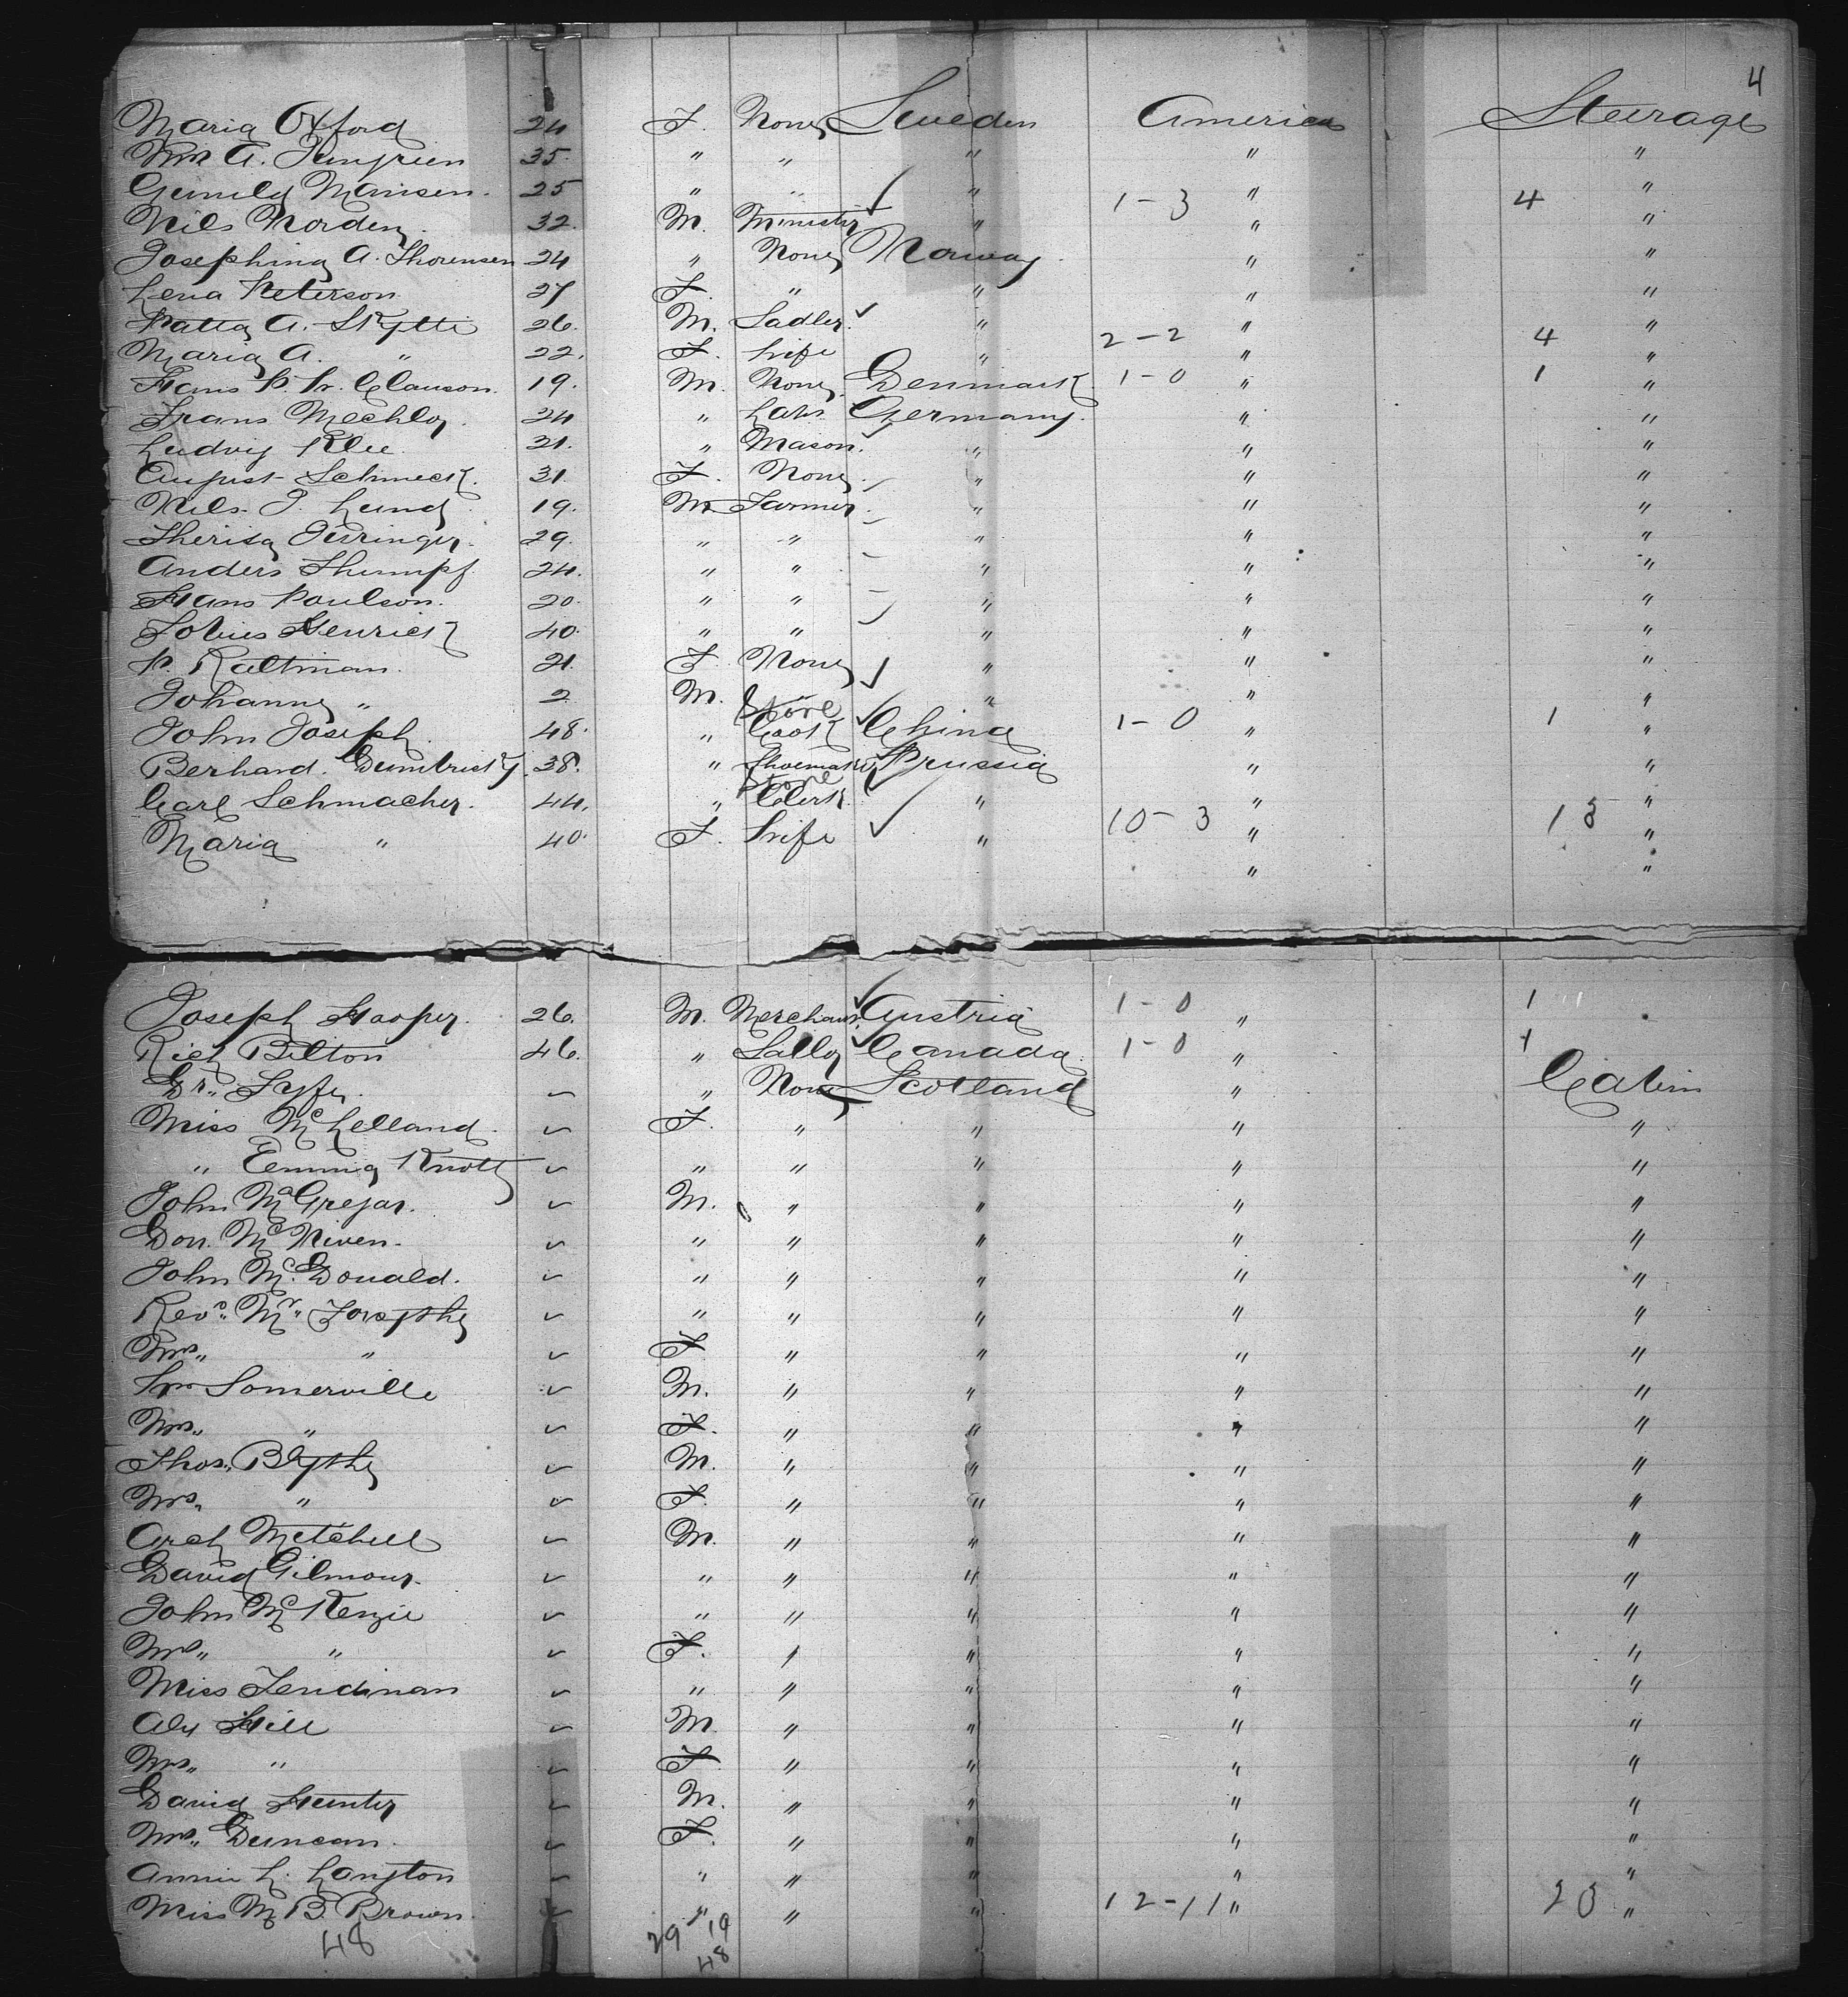 4
Maria Oxford 24 F. None Sweden America Steerage
Mrs A. 35. " " " " "
Hansen. 25 " " " 1-3 " 4 "
Nils Norden. 32. M. Minister " " "
Josephina A. Thorensen 24 " None Norway " "
Lena Peterson 27 F. " " " "
A. Skytti 26. M. Sadler. " " "
Maria A. " 22. F. Wife " 2-2 " 4 "
Hans P. Clauson. 19. M. None Denmark 1-0 " 1 "
Frans 24 " Labr. Germany. " "
Ludvig Klee. 21. " Mason. " " "
August Schmeck. 31. F. None " " "
Nils. J. Lund. 19. M Farmer. " " "
Therisa 29. " " " " "
Anders Thumpf 24. " " " " "
Hans Poulson. 20. " " " " "
Henrick 40. " " " " "
P. Raltman. 21. F. None " " "
Johanne " 2 M. " " " "
John Joseph. 48. " Store Cook China 1-0 " 1 "
Berhard. 38. " Shoemaker Prussia " "
Carl Schmacher. 44. " Store Clerk. " " "
Maria " 40. F. Wife " 10-3 " 13 "
" "
Joseph Hooper. 26. M. Merchant. Austria 1-0 " 1 "
Rich Bilton 46. " Canada. 1-0 " 1
Dr. " None Scotland " Cabin
Miss McLelland. F. " " " "
" Emma Knott " " " " "
John McGregar. M. " " " "
Don. McNiven. " " " " "
John McDonald. " " " " "
Revd. Mr. Forsythe " " " " "
Mrs. " F. " " " "
Wm Somerville M. " " " "
Mrs. " F. " " " "
Thos. Blythe M. " " " "
Mrs. " F. " " " "
Arch Mitchell M. " " " "
David Gilmour. " " " " "
John McKenzie " " " " "
Mrs. " F. " " " "
Miss Tendinan " " " " "
Alex Hill M. " " " "
Mrs. " " F. " " " "
David Hunter M. " " " "
Mrs. Duncan. F. " " " "
Annie L. Langton " " " " "
Miss M B. Brown. " " " 12-11 " 23 "
48 29 19
48